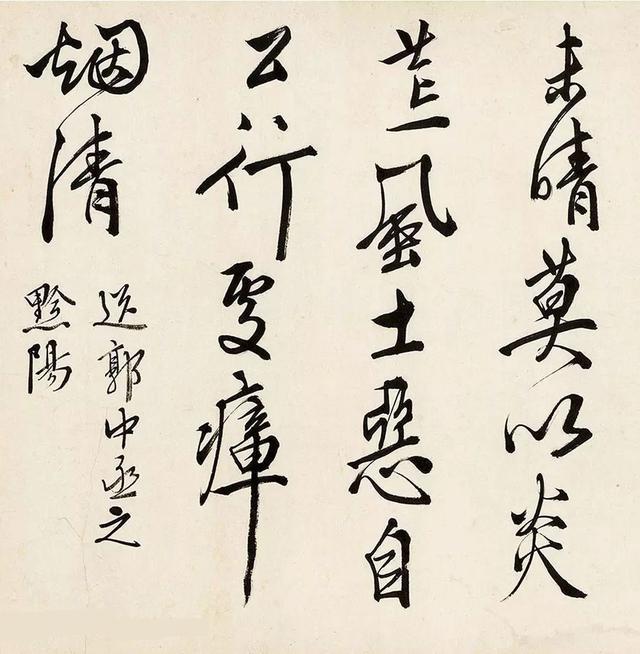 未晴莫以炎
荒風土惡自
公行處瘴
烟清
送郭中丞之
黔陽